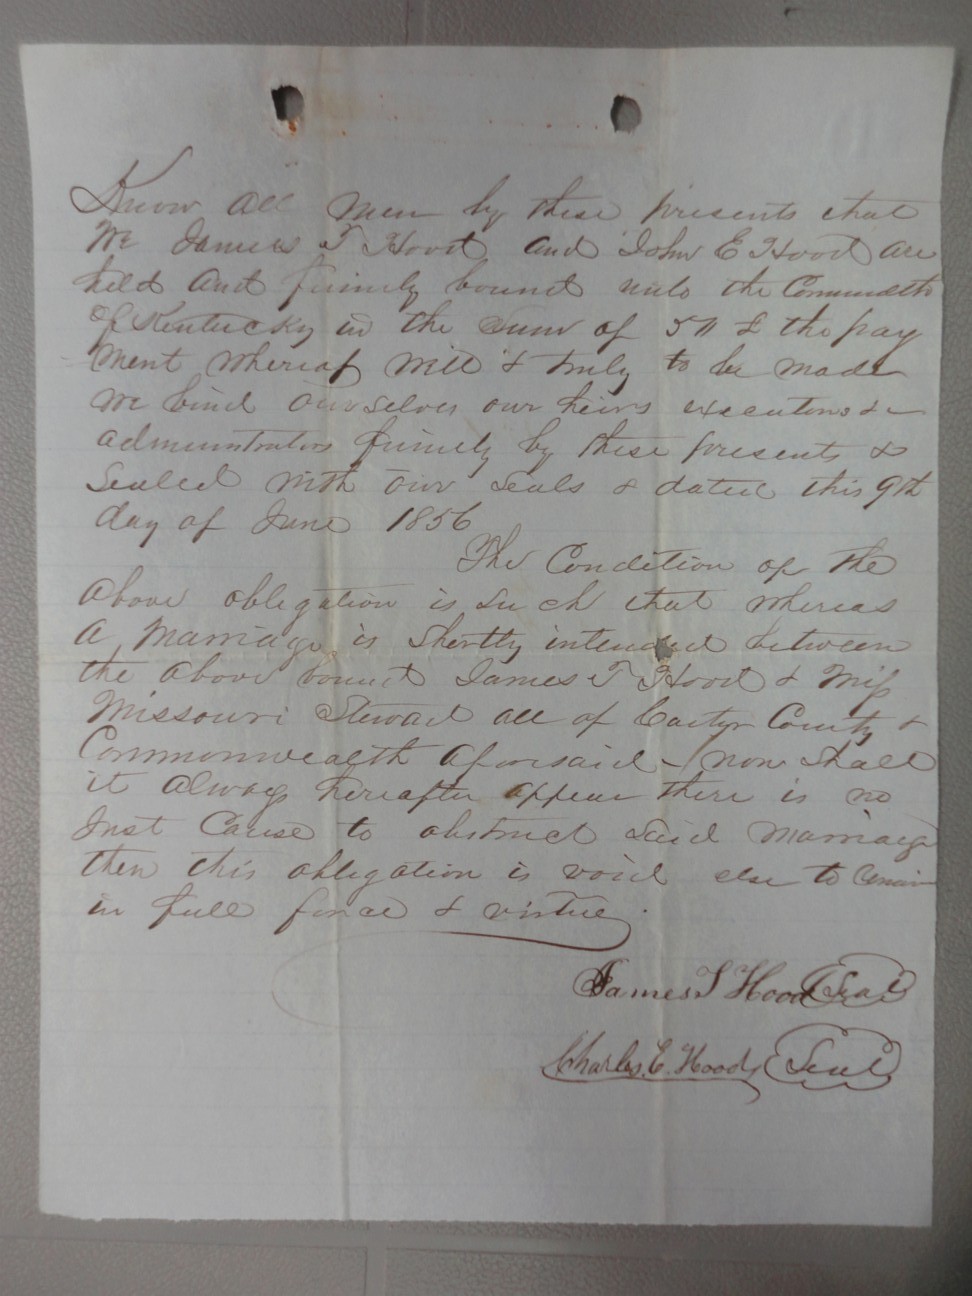 Know all Men by these presents that
We James T Hood and John E Hood are
held and firmly bound unto the Commwlth
of Kentucky in the Sum of £ the pay
ment whereof Well & truly to be made
We bind ourselves our heirs executors &
administrators firmly by these presents &
Sealed with our Seals & dated this 9th
day of June 1856
The Condition of the
above obligation is Such that whereas
A Marriage is Shortly intended between
the above bound James T Hood & Miss
Missouri Steward all of Carter County &
Commonwealth aforesaid - now Shall
it always hereafter appear there is no
Just Cause to obstruct Said Marriage
then this obligation is void else to remain
in full force & virtue
James T Hood Seal
Charles. E. Hood Seal